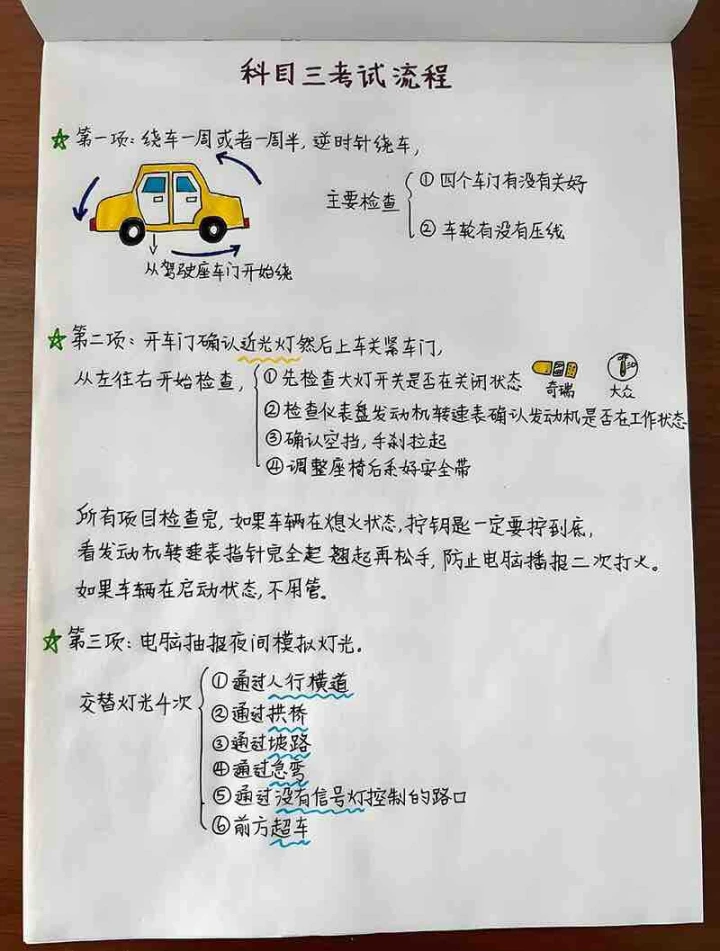 科目三考试流程
☆第一项：绕车一周或者一周半，逆时针绕车，
主要检查
①四个车门有没有关好
②车轮有没有压线
从驾驶座车门开始绕
☆第二项：开车门确认近光灯然后上车关紧车门，
从左往右开始检查，
①先检查大灯开关是否在关闭状态
奇瑞
大众
②检查仪表盘发动机转速表确认发动机是否在工作状态
③确认空挡，手刹拉起
④调整座椅后系好安全带
所有项目检查完，如果车辆在熄火状态，拧钥匙一定要拧到底，
看发动机转速表指针完全起翘起再松手，防止电脑播报二次打火。
如果车辆在启动状态，不用管。
☆第三项：电脑抽报夜间模拟灯光.
交替灯光4次
①通过人行横道
②通过拱桥
③通过坡路
④通过急弯
⑤通过没有信号灯控制的路口
⑥前方超车